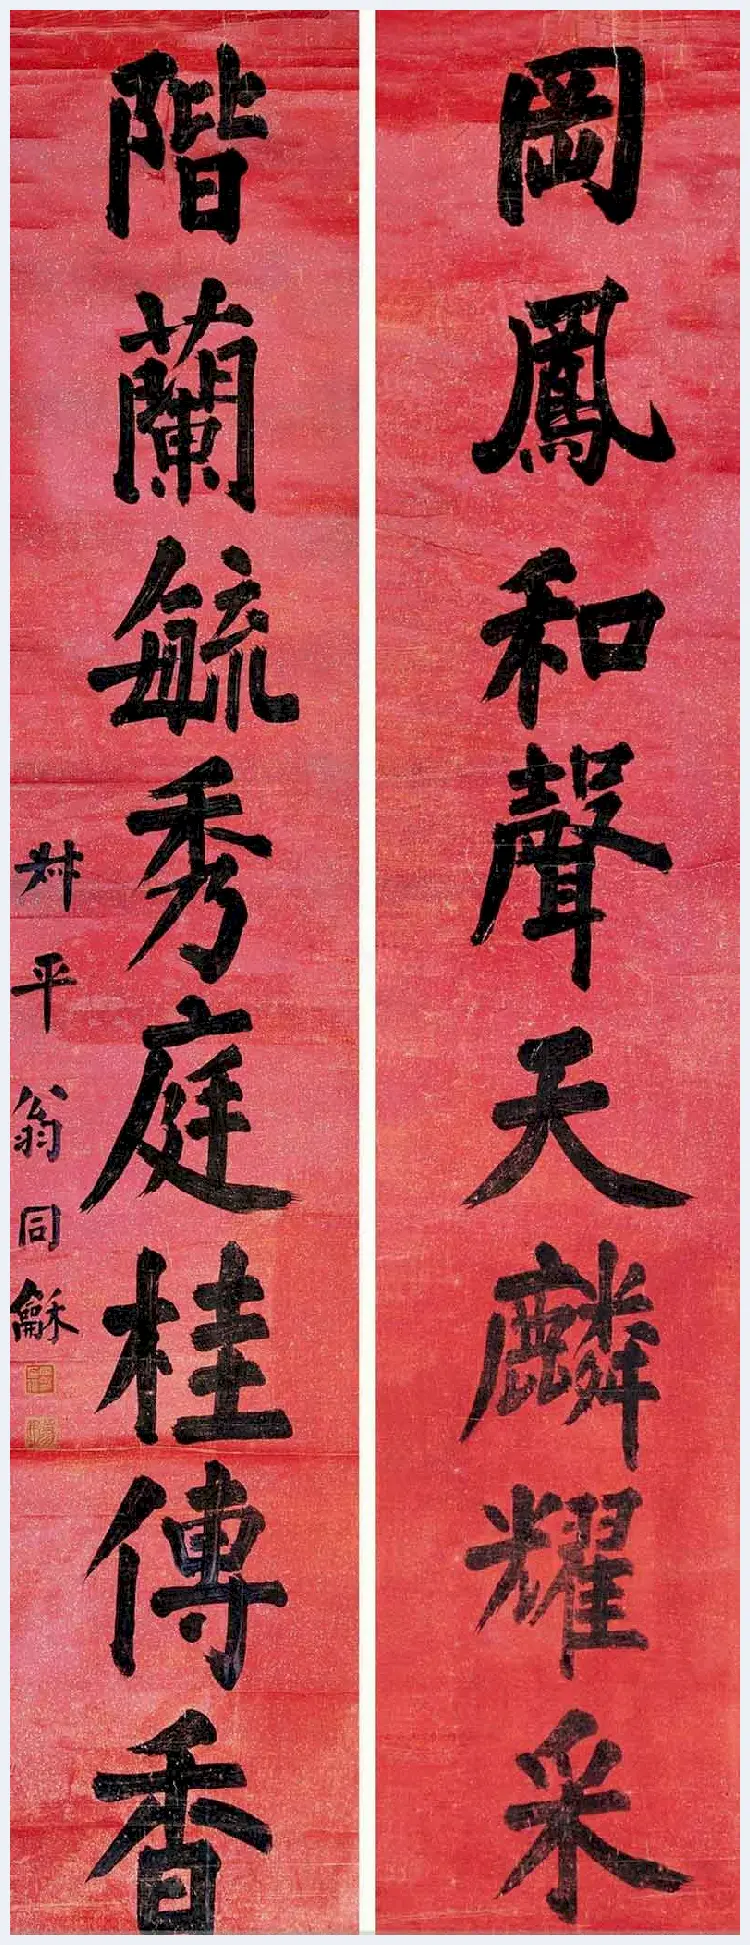 岡鳳和聲天麟耀采
階蘭毓秀庭桂傳香
叔平翁同龢